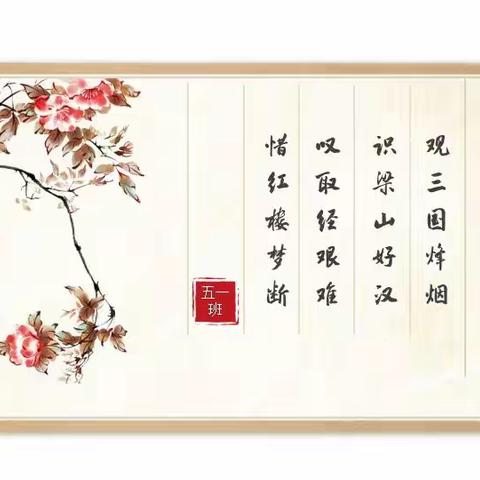 观三国烽烟
识梁山好汉
叹取经艰难
惜红楼梦断
五一
班